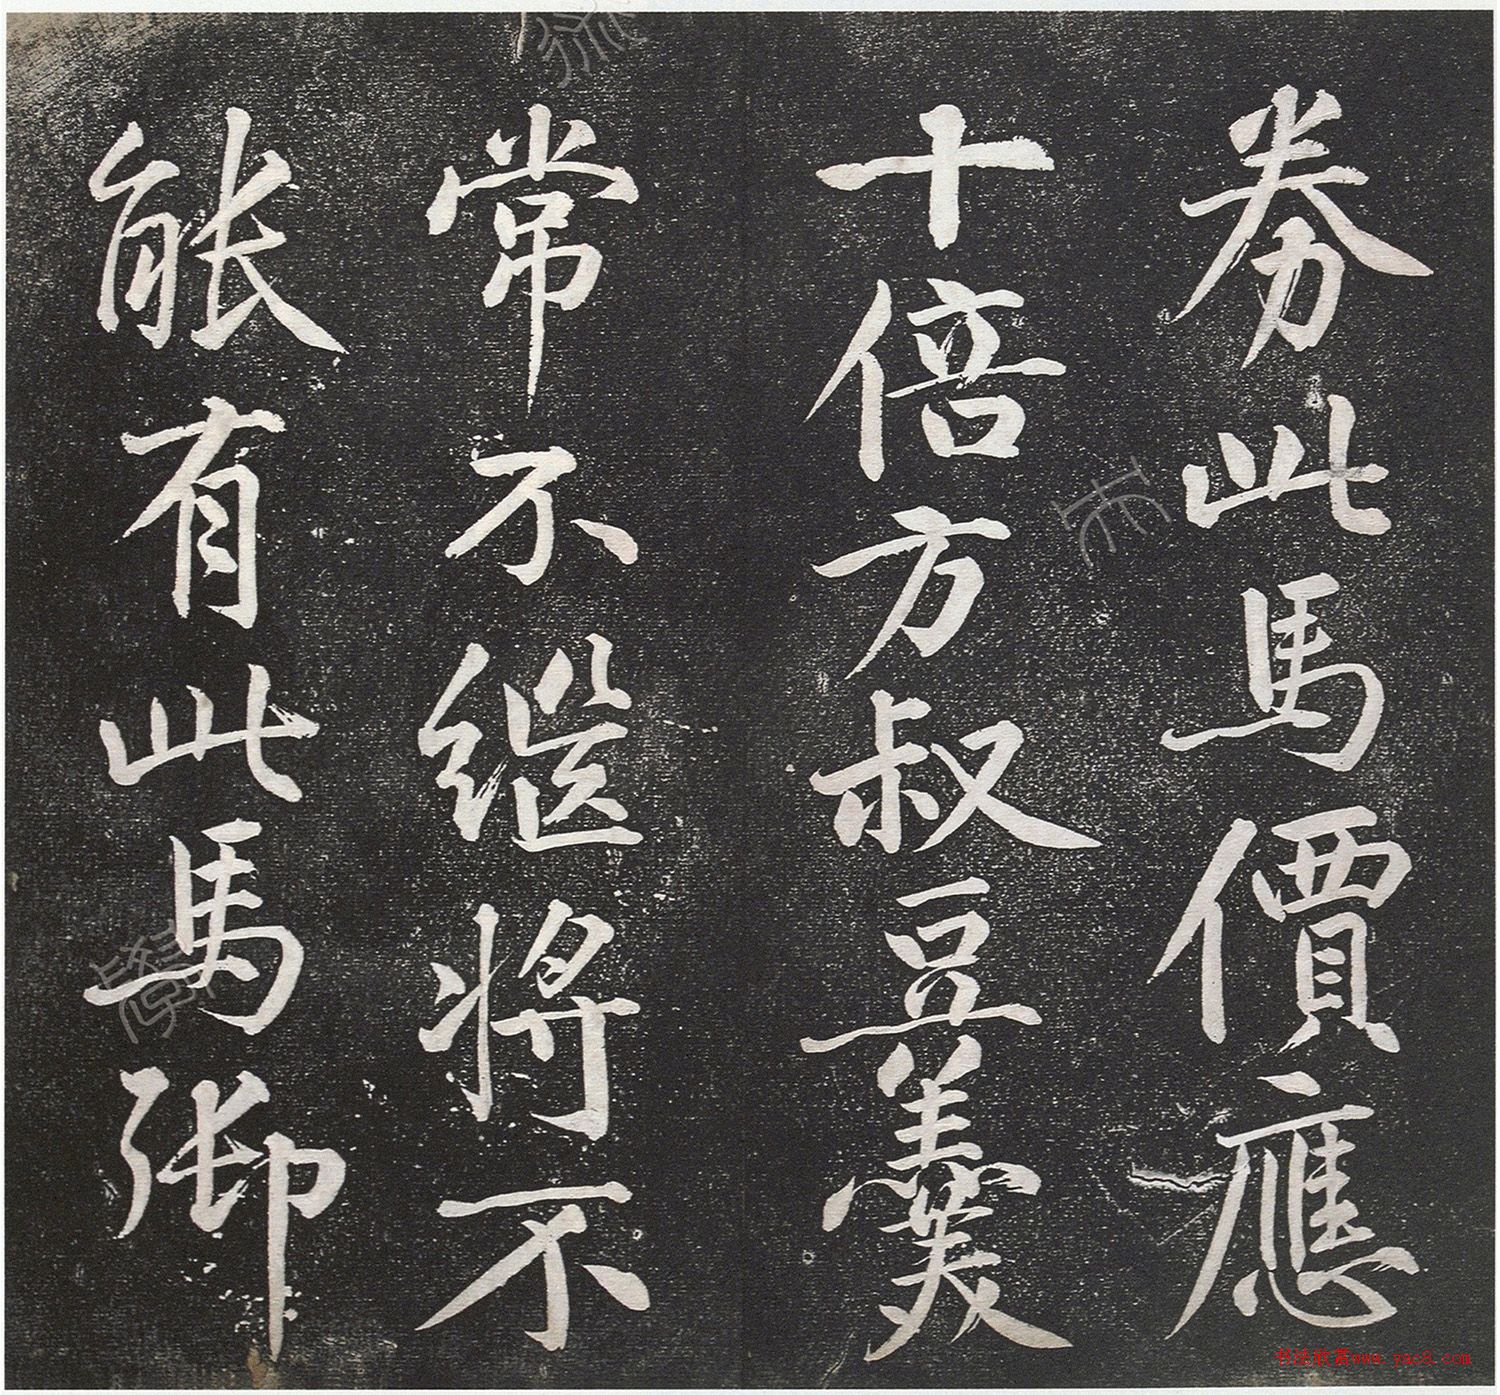 券此馬價應
十倍方叔豆羹
常不繼將不
能有此馬御
书法欣赏www.yac8.com